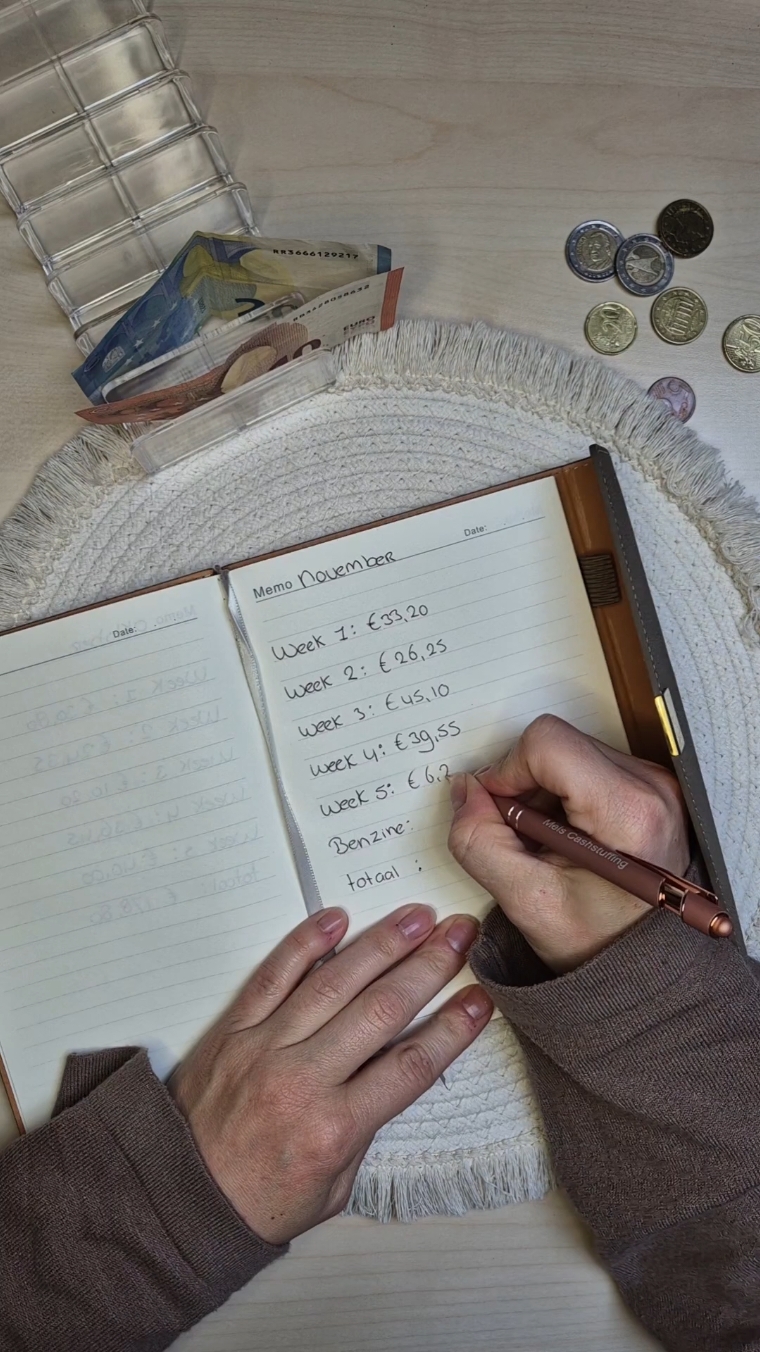 RR3666129217
EURO
10
Date:
Memo November
Date:
Week 1: €33,20
Week 2: €26,25
Week 3: €45,10
Week 4: €39,55
Week 5: €6,2
Benzine:
totaal :
Meis Cashstuffing